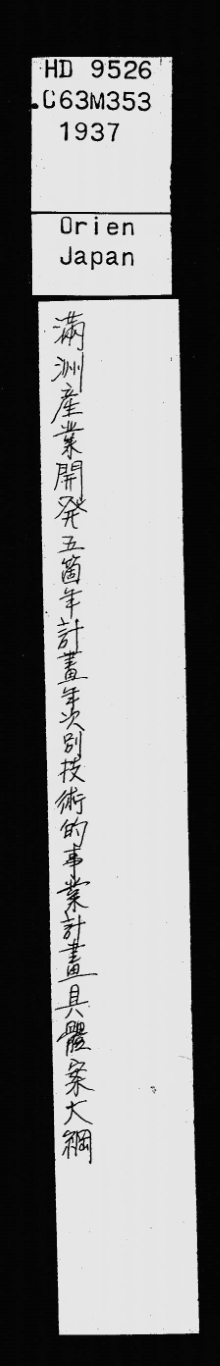 HD 9526
.C63M353
1937
Orien
Japan
満洲産業開発五箇年計畫年次別技術的事業計畫具體案大綱